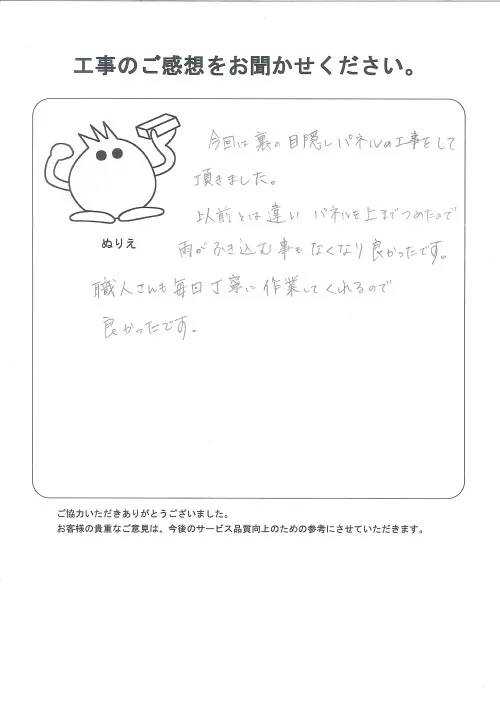 工事のご感想をお聞かせください。
今回は裏の目隠しパネルの工事をして
頂きました。
以前とは違い パネルを上までつめたので
ぬりえ
雨がふき込む事もなくなり良かったです。
職人さんも毎日丁寧に作業してくれるので
良かったです。
ご協力いただきありがとうございました。
お客様の貴重なご意見は、今後のサービス品質向上のための参考にさせていただきます。